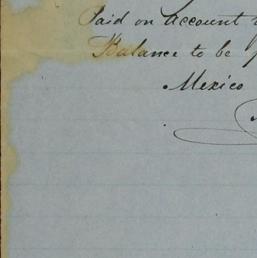 Paid on Account
Balance to be
Mexico